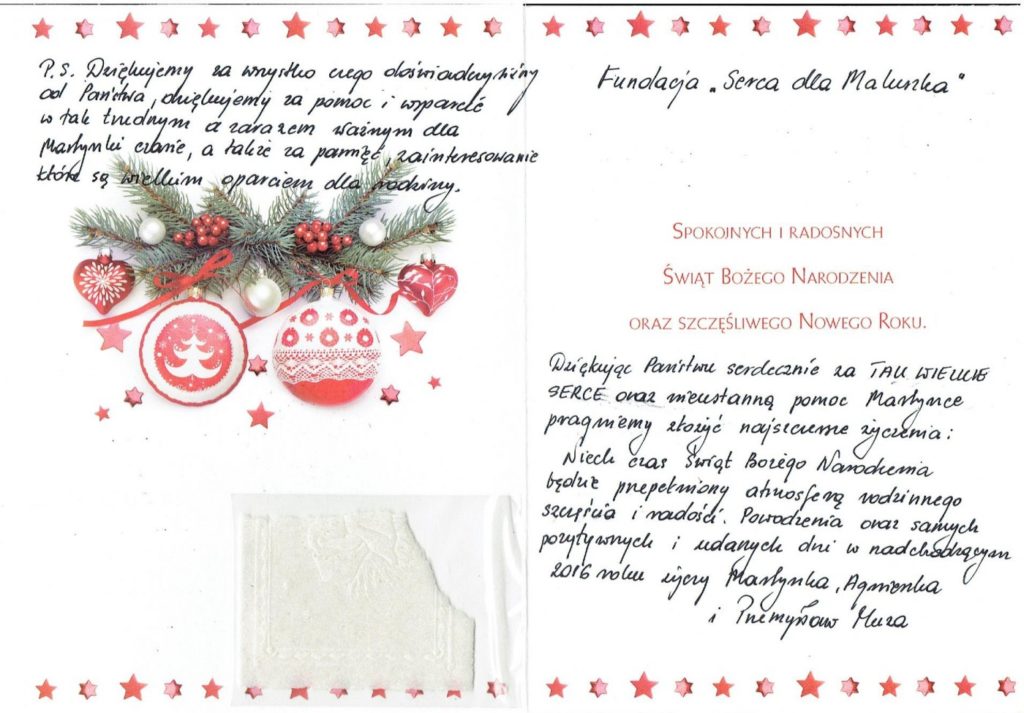 P.S. Dziękujemy za wszystko czego doświadczyliśmy
od Państwa, dziękujemy za pomoc i wsparcie
w tak trudnym a zarazem ważnym dla
Martynki czasie, a także za pamięć, zainteresowanie
które są wielkim oparciem dla rodziny.
Fundacja „Serca dla Maluszka"
SPOKOJNYCH I RADOSNYCH
ŚWIĄT BOŻEGO NARODZENIA
ORAZ SZCZĘŚLIWEGO NOWEGO ROKU.
Dziękując Państwu serdecznie za TAK WIELKIE
SERCE oraz nieustanną pomoc Martynce
pragniemy złożyć najszczersze życzenia:
Niech czas Świąt Bożego Narodzenia
będzie przepełniony atmosferą rodzinnego
szczęścia i radości. Powodzenia oraz samych
pozytywnych i udanych dni w nadchodzącym
2016 roku życzy Martynka, Agnieszka
i Przemysław Muza